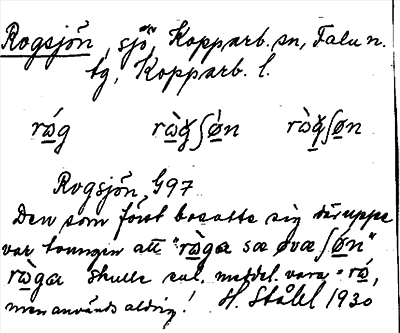 Rogsjön, sjö, Kopparb. sn, Falu n.
tg, Kopparb. l.
rώ̲g rὼ̲ɣ̣ʃø̲̀n rὼ̲ɣ̣ʃø̲n
Rogsjön, G97
Den som först bosatte sig däruppe
var tvungen att "rὼ̲gα sæ øvæ ʃǿ̲n"
rὼ̲gα skulle enl. meddel. vara = rώ̲,
men används aldrig! H. Ståhl 1930